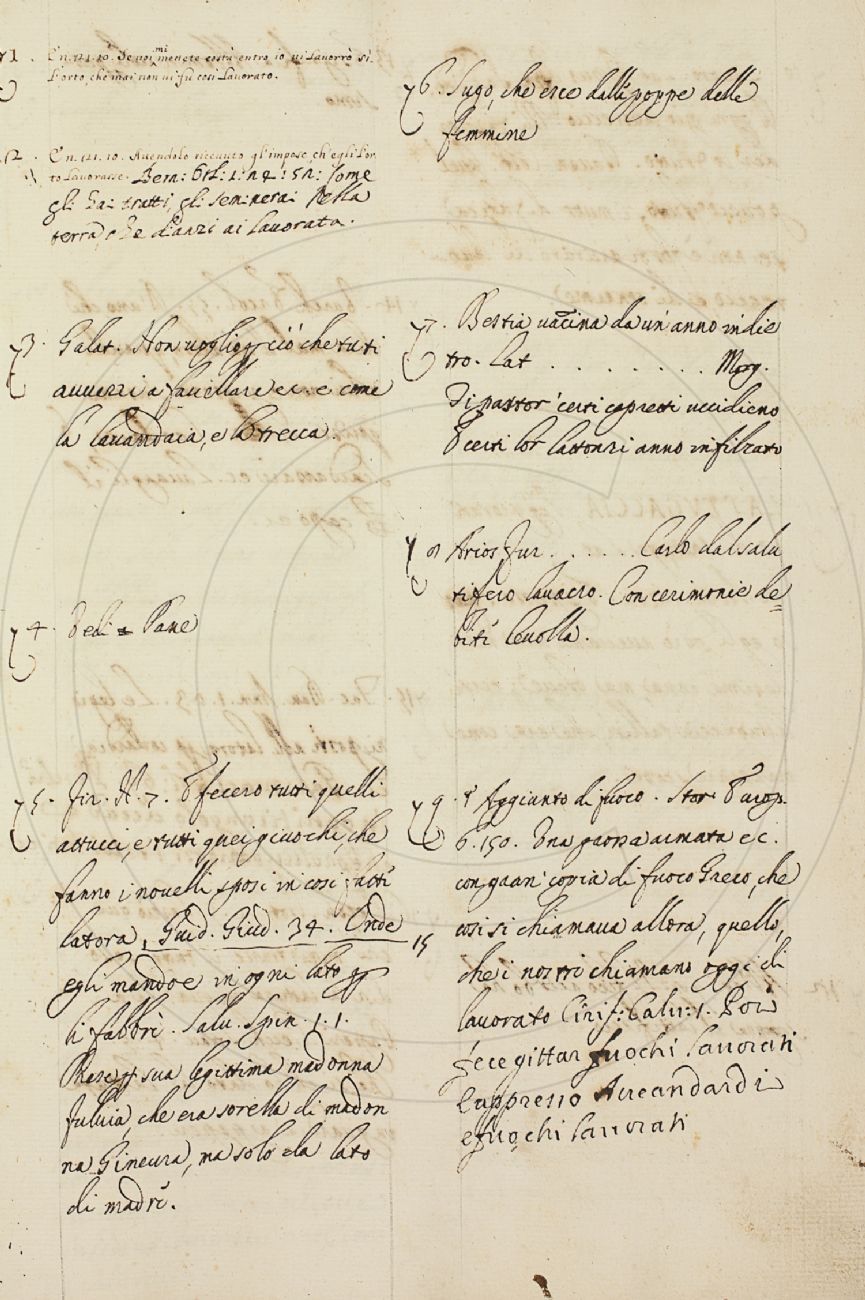 71. En. 121. 10. Se voi mi menete costà entro io vi lavorrò sì
l'orto, che mai non vi fù così lavorato.
72. En. 121. 10. Avendolo ricevuto gl'impose, ch'egli l'or
to lavorasse. Bern: Orl: 1: 4: 51: Come
gli ha: tratti, gli seminerai Nella
terra, che dianzi ai lavorata.
73. Galat. Non voglio ꝑ ciò che tu ti
avvezzi a favellare ec. e come
la lavandaia, e la trecca.
74. Vedi Pane
75. Fir. N. 7. E fecero tutti quelli
attucci, e tutti quei giuochi, che
fanno i novelli sposi in così fatti
latora, Guid. Giud. 34. Onde
egli mandoe in ogni lato ꝑ 15
li fabbri. Salv. Spin. 1. 1.
ꝑ sua legittima madonna
fulvia, che era sorella di madon
na Ginevra, ma solo da lato
di madre.
76. Sugo, che esce dalle poppe delle
femmine
77. Bestia vaccina da un'anno indie
tro. Lat . . . . . . . . Morg.
Di pastor' certi capretti uccidieno
E certi lor lattonzi anno infilzato
78. Arios. Fur. . . . . . Carlo dal salu
tifero lavacro. Con cerimonie de=
biti levollo.
79. Aggiunto di fuoco. Stor. Europ.
6. 150. Una grossa armata ec.
con gran' copia di fuoco Greco, che
così si chiamava allora, quello,
che i nostri chiamano oggi di
lavorato Cirif: Calv: 1. Poi
fece gittar fuochi lavorati
e fuochi lavorati